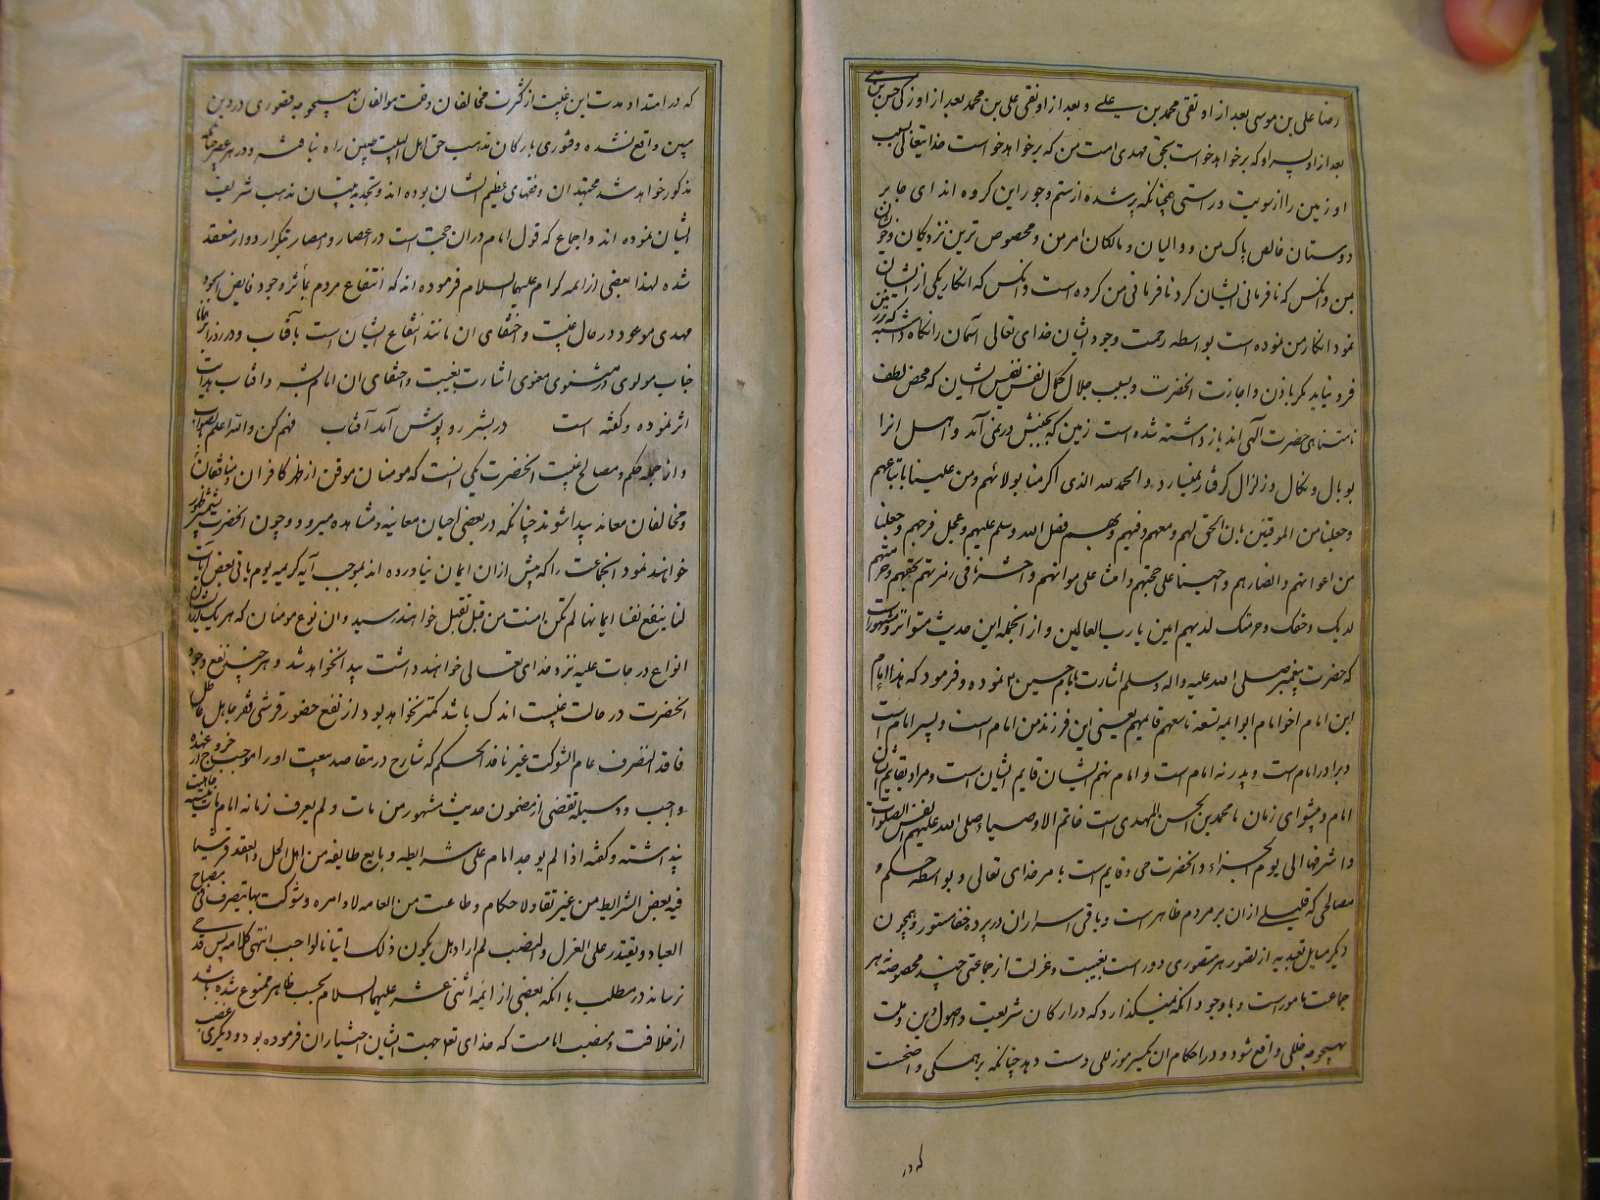 رضا علی بن موسی بعد از او تقی محمد بن علی و بعد از او نقی علی بن محمد بعد از او زکی حسن بن علی
بعد از او پسر او که برخواهد خواست بحق مهدی امت من که برخواهد خواست خدایتعالی بسبب
او زمین را از سویت و راستی همچنانکه پر شده از ستم و جور این گروه اند ای جابر
دوستان خالص پاک من و والیان و مالکان امر من و مخصوص ترین نزدیکان و خویشان
من و انکس که نافرمانی ایشان کرد نافرمانی من کرده است و انکس که انکار یکی از ایشان
نمود انکار من نموده است بواسطه رحمت وجود ایشان خدای تعالی آسمان را نگاه داشته که بر زمین
فرو نیاید مگر باذن و اجازت انحضرت و بسبب جلال کمال نفس نفیس ایشان که محض لطف
نامتناهی حضرت الهی اند باز داشته شده است زمین که بجنبش در نمی آید و اهل انرا
بوبال و نکال و زلزال گرفتار نمیسازد و الحمد لله الذی اکرمنا بولائهم و من علینا باتباعهم
وجعلنا من الموقنین بان الحق لهم ومعهم وفیهم وبهم فصل الله وسلم علیهم وعجل فرجهم وجعلنا
من اعوانهم وانصارهم واحینا علی حجتهم وامتنا علی موالاتهم واحشرنا فی زمرتهم بحقهم وحرمتهم
لدیک وحقک وحرمتک لدیهم امین یا رب العالمین و از انجمله این حدیث متواتر و مشهور است
که حضرت پیغمبر صلی الله علیه واله وسلم اشارت بامام حسین نموده و فرمود که هذا امام
ابن امام اخو امام ابو ائمه تسعة تاسعهم قائمهم یعنی این فرزند من امام است و پسر امام است
و برادر امام است و پدر نه امام است و امام نهم ایشان قایم ایشان است و مراد بقایم ایشان
امام و پیشوای زمان ما محمد بن الحسن المهدی است خاتم الاوصیاء صلی الله علیهم افضل الصلوات
و اشرفها الی یوم الجزاء و انحضرت حی و قایم است بامر خدای تعالی و بواسطه حکم و
مصالحی که قلیلی از ان بر مردم ظاهر است و باقی اسرار ان در پرده خفا مستور و همچون
دیگر مسایل تعبدیه از تصور هر متصوری دور است بغیبت و عزلت از جماعتی چند مخصوصه هر
جماعت مامور است و باوجود انکه نمیگذارد که در ارکان شریعت و اصول دین و ملت
بهیچوجه خللی واقع شود و در احکام ان یکسر مو زللی دست دهد چنانکه بر همگی واضحست
که در
که در امتداد مدت این غیبت از کثرت مخالفان و قلت موالفان بهیچوجه قصوری در دین
مبین واقع نشده و فتوری بارکان مذهب حق اهل البیت مبین راه نیافته و در هر عصر چنانکه
مذکور خواهد شد مجتهدان و فقهای عظیم الشان بوده اند و تجدید بنیان مذهب شریف
ایشان نموده اند و اجماع که قول امام در ان حجت است در اعصار و امصار بتکرار ادوار منعقد
شده لهذا بعضی از ائمه کرام علیهم السلام فرموده اند که انتفاع مردم بمآثر وجود فایض الجود
مهدی موعود در حال غیبت و اختفای ان مانند انتفاع ایشان است بآفتاب و در روز ابر
جناب مولوی در مثنوی معنوی اشارت بغیبت و اختفای ان امام البشر و افتاب هدایت
اثر نموده و گفته است در بشر روپوش آمد آفتاب فهم کن والله اعلم بالصواب
و از انجمله حکم و مصالح غیبت انحضرت یکی انست که مومنان موقن از ظهر کافران و منافقان
و مخالفان معاند پیدا شوند چنانکه در بعضی احیان معاینه و مشاهده میرود و چون انحضرت بشمشیر ظهور
خواهند نمود انجماعت را که پیش از ان ایمان نیاورده اند بموجب آیه کریمه یوم یاتی بعض آیات
لا ینفع نفسا ایمانها لم تکن امنت من قبل بقتل خواهند رسید و ان نوع مومنان که هر یک
انواع درجات علیه نزد خدای تعالی خواهند داشت پیدا نخواهد شد و هر چند نفع وجود
انحضرت در حالت غیبت اندک باشد کمتر نخواهد بود از نفع حضور قرشی فقر جاهل عاطل
فاقد التصرف عام الشوکت غیر نافذ الحکم که شارح در مقاصد بیعت او را موجب خروج از عهده
واجب و وسیله تفصی از مضمون حدیث مشهور من مات ولم یعرف زمانه امام مات میتة جاهلیت
پنداشته و گفته اذا لم یوجد امام علی شرایطه وبایع طایفه من اهل الحل والعقد قرشیا
فیه بعض الشرایط من غیر نفاذ لاحکام وطاعت من العامه لاوامره وشوکت بها یتصرف فی مصالح
العباد ویقتدر علی العزل والنصب لم اراد بل یکون ذلک اتیانا لواجب انتهی کلامه پس قدحی
نرساند در مطلب با انکه بعضی از ایمه اثنی عشر علیهم السلام بحسب ظاهر ممنوع شده باشد
از خلافت و منصب امامت که خدای تعالی جهت ایشان اختیار ان فرموده بود و دیگری بغصب